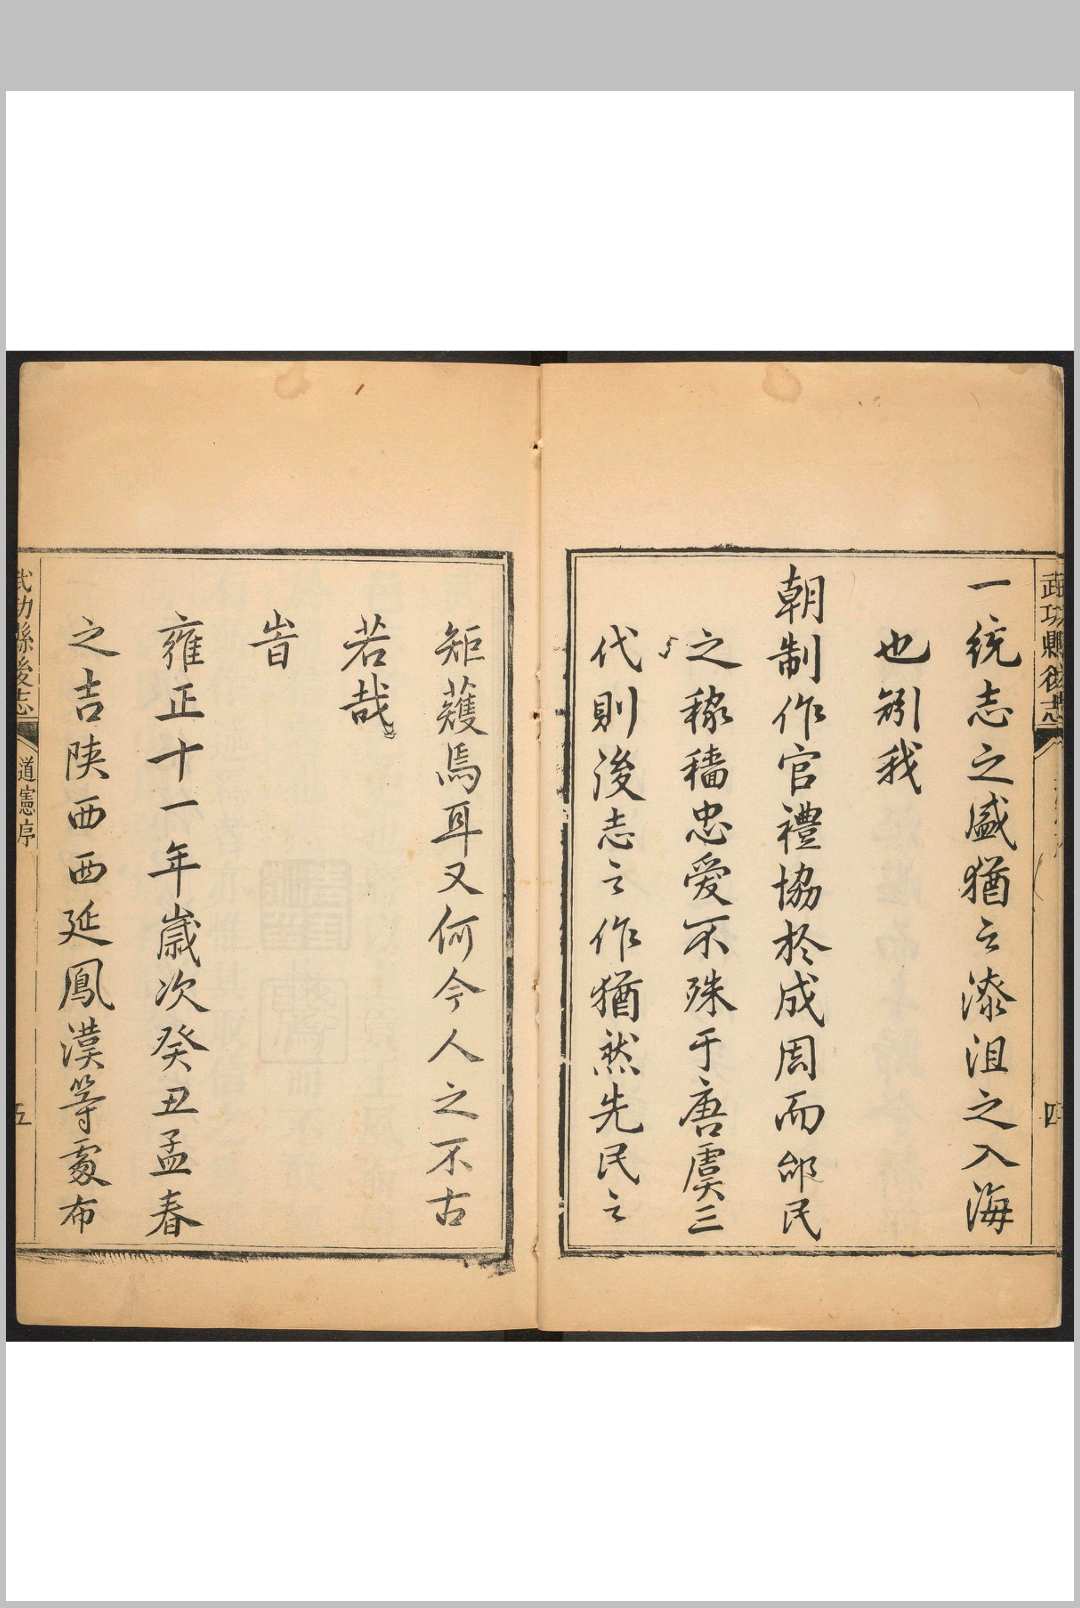 武功縣後志
四
一統志之盛猶云漆沮之入海
也矧我
朝制作官禮協於成周而邰民
之稼穡忠愛不殊于唐虞三
代則後志之作猶然先民之
矩矱焉耳又何今人之不古
若哉
旹
雍正十一年歲次癸丑孟春
之吉陕西西延鳳漢等處布
武功縣後志
道憲序
五